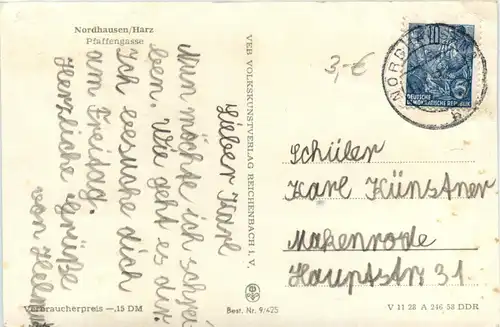 Nordhausen/Harz
Pfaffengasse
Lieber Karl
Nun möchte ich schrei
ben. Wie geht es dir
Ich besuche dich
am Freitag.
Herzliche Grüße
von Helmut
Verbraucherpreis —.15 DM
VEB VOLKSKUNSTVERLAG REICHENBACH I. V.
Best. Nr. 9/425
3,-€
DEUTSCHE
DEMOKRATISCHE REPUBLIK
6
Schüler
Karl Künstner
Makenrode
Hauptstr 31
V 11 28 A 246 58 DDR